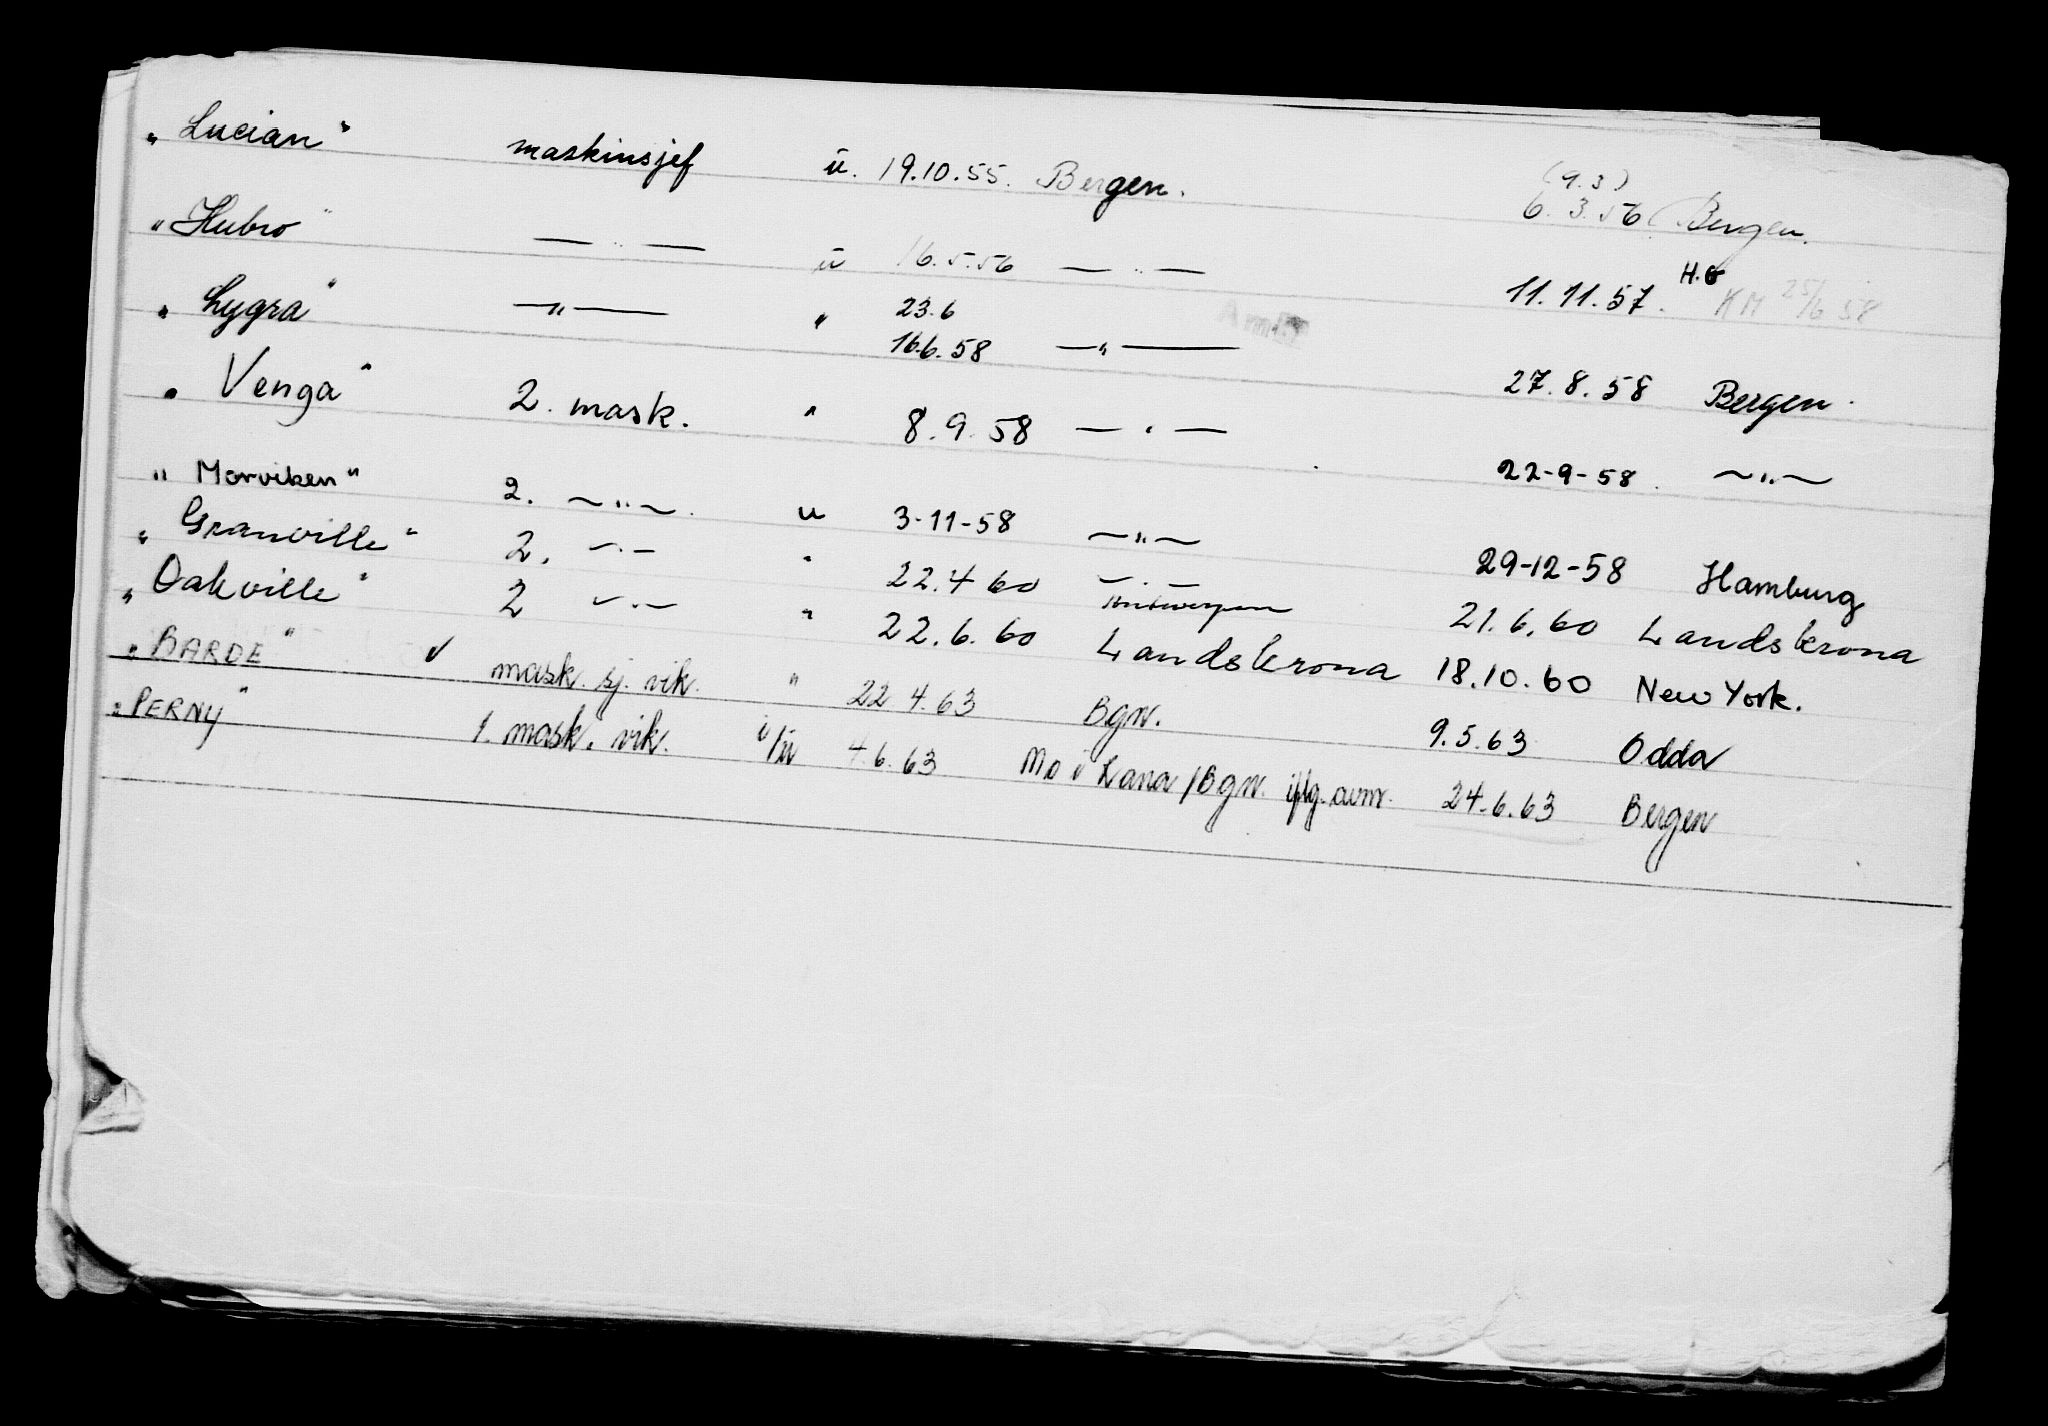 „ Lucian“ maskinsjef ü. 19.10.55. Bergen. (9.3) 6.3.56 Bergen.
„ Hubro“ — „ — ü 16.5.56 — „ — 11.11.57. H.G KM 25/6 58
„ Lygra“ — „ — „ 23.6 16.6.58 — „ — 27.8.58 Bergen.
„ Venga“ 2. mask. „ 8.9.58 — „ — 22-9-58. — „ —
„ Morviken“ 2. — „ — u 3-11-58 — „ — 29-12-58 Hamburg
„ Granville“ 2. — „ — „ 22.4 60 — „ — Antwerpen 21.6.60 Landskrona
„ Oakville“ 2 — „ — „ 22.6.60 Landskrona 18.10.60 New York.
„ BARDE“ ✓ mask. sj. vik. „ 22 4.63 Bgn. 9.5.63 Odda
„ PERNY“ 1. mask. vik. i/ü 4.6.63 Mo i Rana/Bgn. iflg. avm. 24.6.63 Bergen